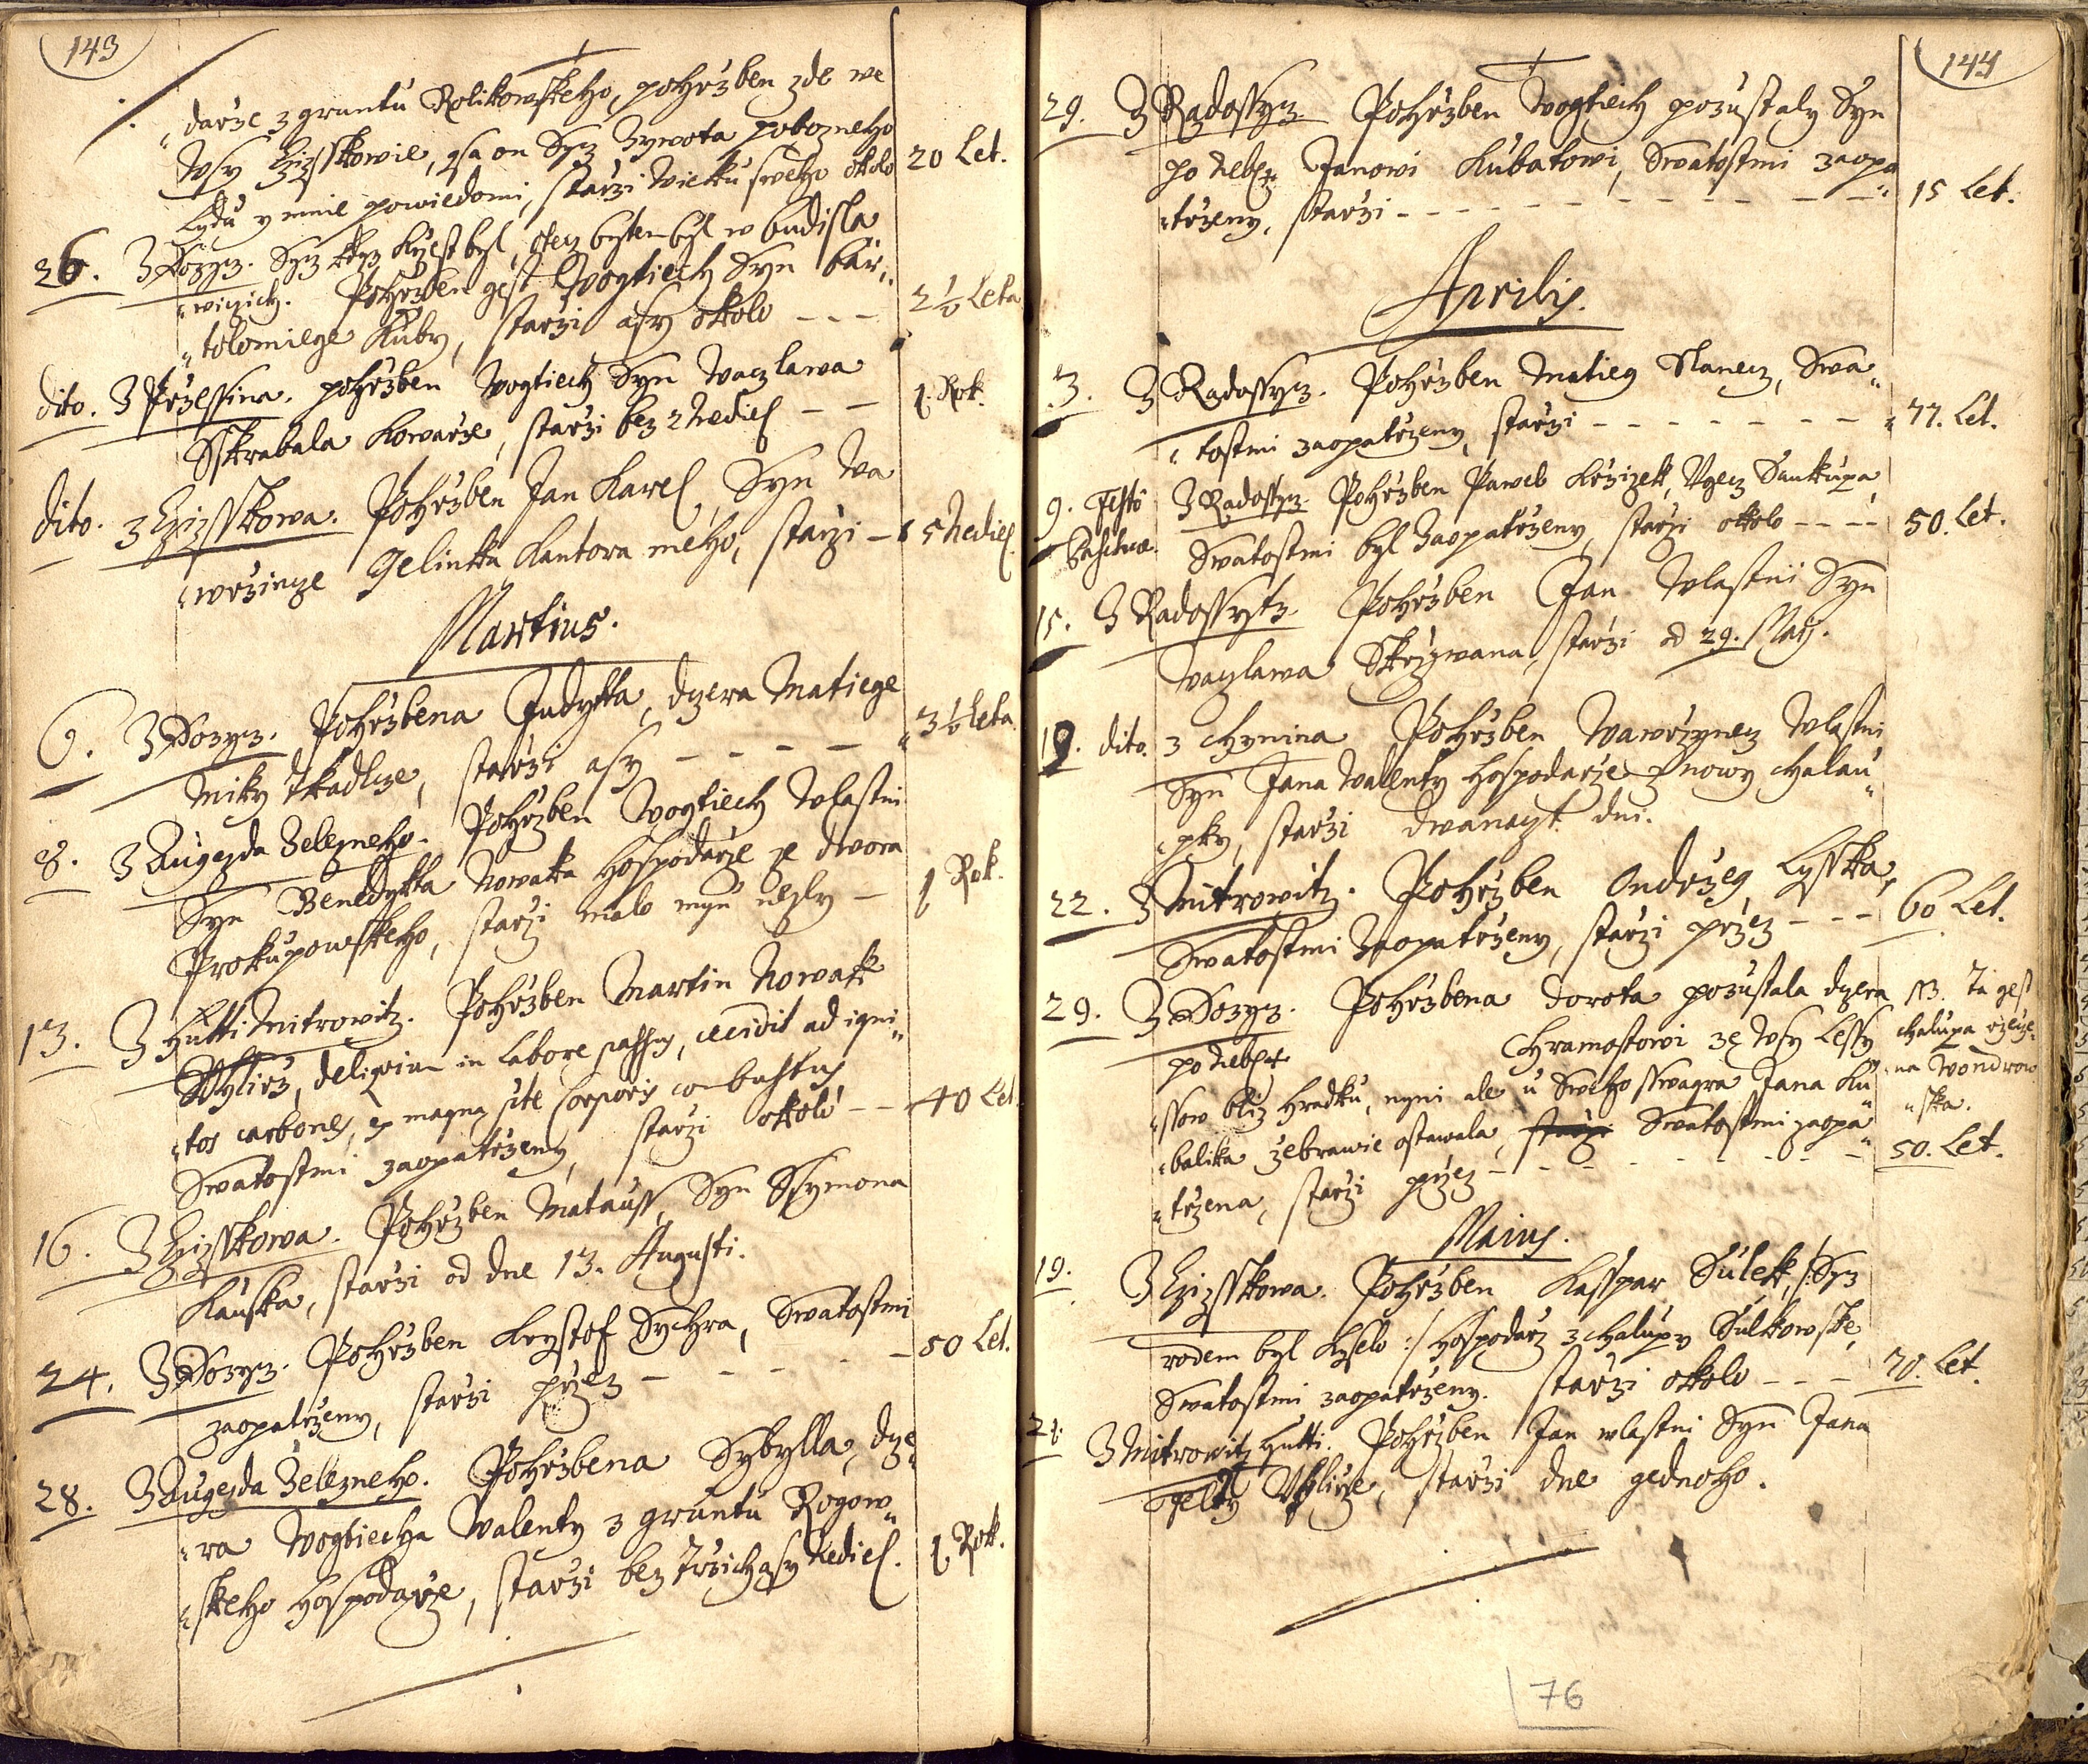 143
darze z gruntu Rolikowskeho, pohrzben zde we
Wsy Czizsskowie, gsa on Sycz Zywota pobozneho
Lydu y mnie powiedomi, starzi Wieku sweho okolo 20 Let.
26. Z Dozycz. Sycz byl, otecz byl w budisla
wiczich. Pohrzben gest Wogtiech Syn bar,,
tolomiege Kuby, starzi asy okolo - - - 2½ Leta
dito. Z Przessina. pohrzben Wogtiech Syn Waczlawa
Sskrabala Kowarze, starzi bez 2 Nediel - - 1. Rok.
dito. z Czizsskowa. Pohrzben Jan Karel, Syn Wa
wrzincze Gelinka Kantora meho, starzi - 5 Nediel.
Martius.
6. Z Dozycz. Pohrzbena Judytta, dczera Matiege
Miky Tkadlcze, starzi asy - - - - 3½ Leta.
8. Z Augezda Zelezneho. Pohrzben Wogtiech Wlastni
Syn Benedykta Nowaka Hospodarze ze dwora
Prokupowskeho, starzi malo myn nezly - 1 Rok.
13. Z Hutti Mitrowitz. Pohrzben Martin Nowak
Uhlirz, deliqium in Labore passus, cecidit ad igni,,
tos carbones, ex magna Corporis combustus
Swatostmi zaopatrzeny, starzi okolo - - 40 Let.
16. Z Czizsskowa. Pohrzben Matauss, Syn Ssymona
Kauska, starzi od dne 13. Augusti.
24. Z Dozycz. Pohrzben Krystof Sychra, Swatostmi
zaopatrzeny, starzi przez - - - - - 50 Let.
28. Z Augezda Zelezneho. Pohrzbena Sybylla, dcze
ra Wogtiecha Walenty z gruntu Rogow,,
skeho Hospodarze, starzi bez Trzich asy Nediel. 1. Rok.
144
29. Z Radossycz. Pohrzben Wogtiech pozustaly Syn
po Nebsti. Janowi Kubatowi, Swatostmi zaopa
trzeny, starzi - - - - - - - - - 15 Let.
Aprilis.
3. Z Radossycz. Pohrzben Matieg Slanecz, Swa,,
tostmi zaopatrzeny, starzi - - - - - - - 77. Let.
9. Festo Paschae. Z Radossycz. Pohrzben Pawel Krzizek, Wgecz Saukupa
Swatostmi byl Zaopatrzeny, starzi okolo - - - - 50. Let.
15. Z Radossytz. Pohrzben Jan Wlastni Syn
Waczlawa Skrzywana, starzi od 29. Marty.
19. dito. z Chynina Pohrzben Wawrzynecz Wlastni
Syn Jana Walenty Hospodarze z nowy Chalau,,
pky, starzi dwanaczt dni.
22. Z Mitrowitz. Pohrzben Ondrzeg Lysska,
Swatostmi Zaopatrzeny, starzi przez - - - 60 Let.
29. Z Dozycz. Pohrzbena dorota pozustala dczera
po Nebsti. Chramostowi ze Wsy Lessy
ssow bliz Hradku, nyni ale u Sweho sswagra Jana Ku,,
balika zebrawie ostawala, Swatostmi zaopa,,
trzena, starzi przez - - - - - - - - 50. Let.
NB. Ta gest
chalupa rzecze,,
na Wondrow
ska.
Maius.
19. Z Czizsskowa. Pohrzben Kasspar Sulek, /: Sycz
rodem byl Kyselo :/ Hospodarz z chalupy Sulkowske,
Swatostmi zaopatrzeny. starzi okolo - - - 70. Let.
21. Z Mitrowitz Hutti. Pohrzben Jan wlastni Syn Jana
Uhlirze, starzi dne gednoho.
76